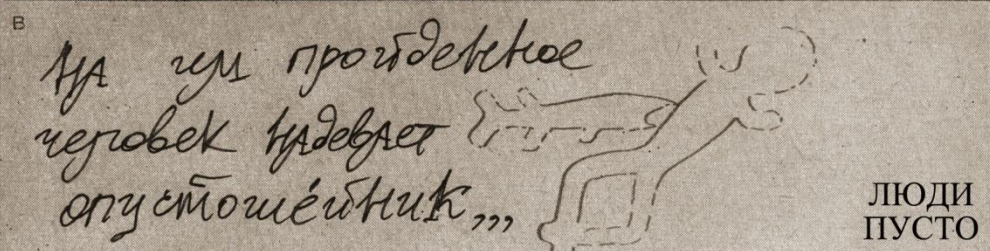 В
на ум пройденное
человек надевает
опустоше́йник,,,
ЛЮДИ
ПУСТО